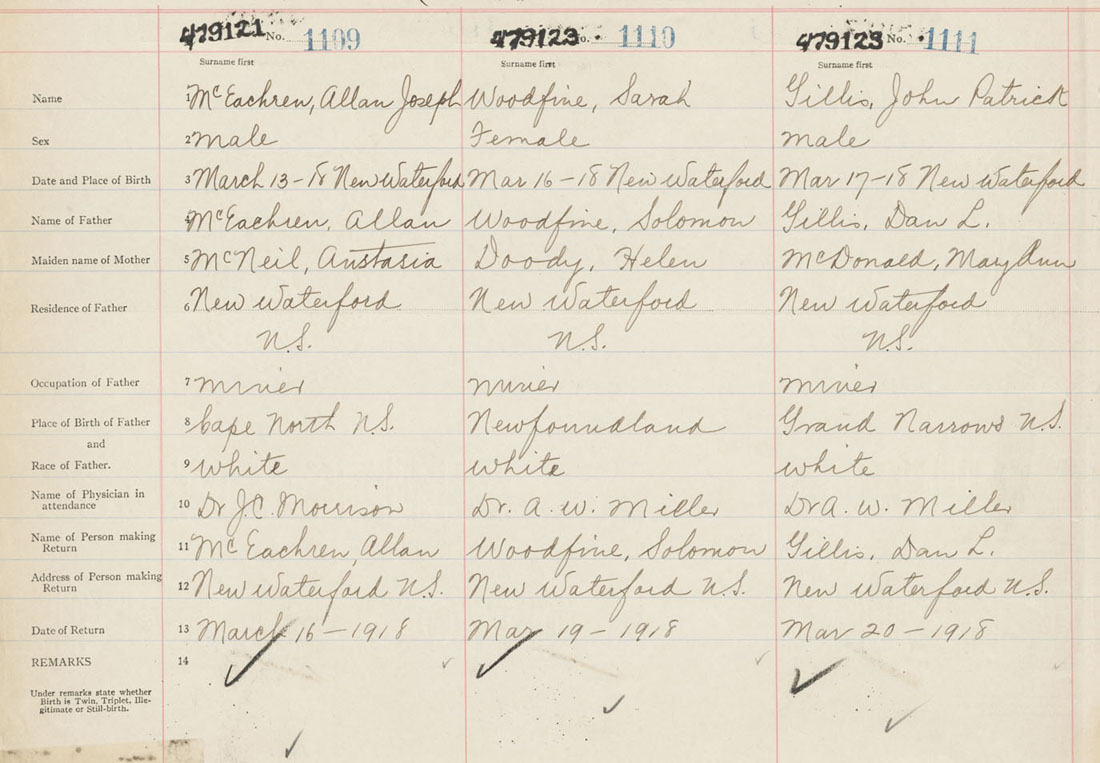 479121 No. 1109 479123 No. 1110 479123 No. 1111
Surname first Surname first Surname first
Name 1 McEachren, Allan Joseph Woodfine, Sarah Gillis, John Patrick
Sex 2 male Female male
Date and Place of Birth 3 March 13-18 New Waterford Mar 16-18 New Waterford Mar 17-18 New Waterford
Name of Father 4 McEachren, Allan Woodfine, Solomon Gillis, Dan L.
Maiden name of Mother 5 McNeil, Anstasia Doody, Helen McDonald, Mary Ann
Residence of Father 6 New Waterford New Waterford New Waterford
N.S. N.S. N.S.
Occupation of Father 7 miner miner miner
Place of Birth of Father 8 Cape North N.S. Newfoundland Grand Narrows N.S.
and
Race of Father. 9 white white white
Name of Physician in
attendance 10 Dr J.C. Morrison Dr. A. W. Miller Dr A. W. Miller
Name of Person making
Return 11 McEachren, Allan Woodfine, Solomon Gillis, Dan L.
Address of Person making
Return 12 New Waterford N.S. New Waterford N.S. New Waterford N.S.
Date of Return 13 March 16-1918 Mar 19-1918 Mar 20-1918
REMARKS 14
Under remarks state whether
Birth is Twin, Triplet, Ille-
gitimate or Still-birth.